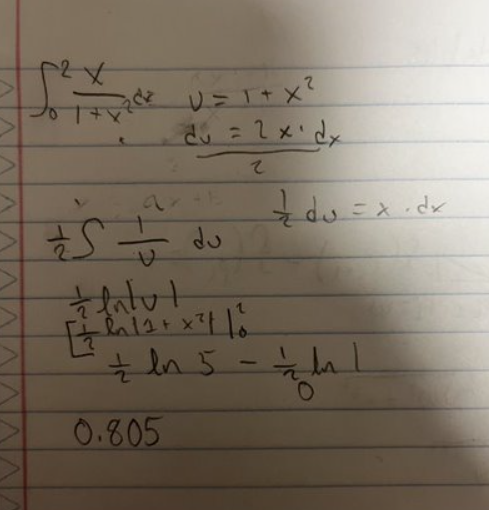 ∫₀² x/(1+x²) dx   u = 1 + x²
du = 2x · dx
2
½ du = x · dx
½ ∫ 1/u du
½ ln|u|
[½ ln|1 + x²|]₀²
½ ln 5 − ½ ln 1
0
0.805